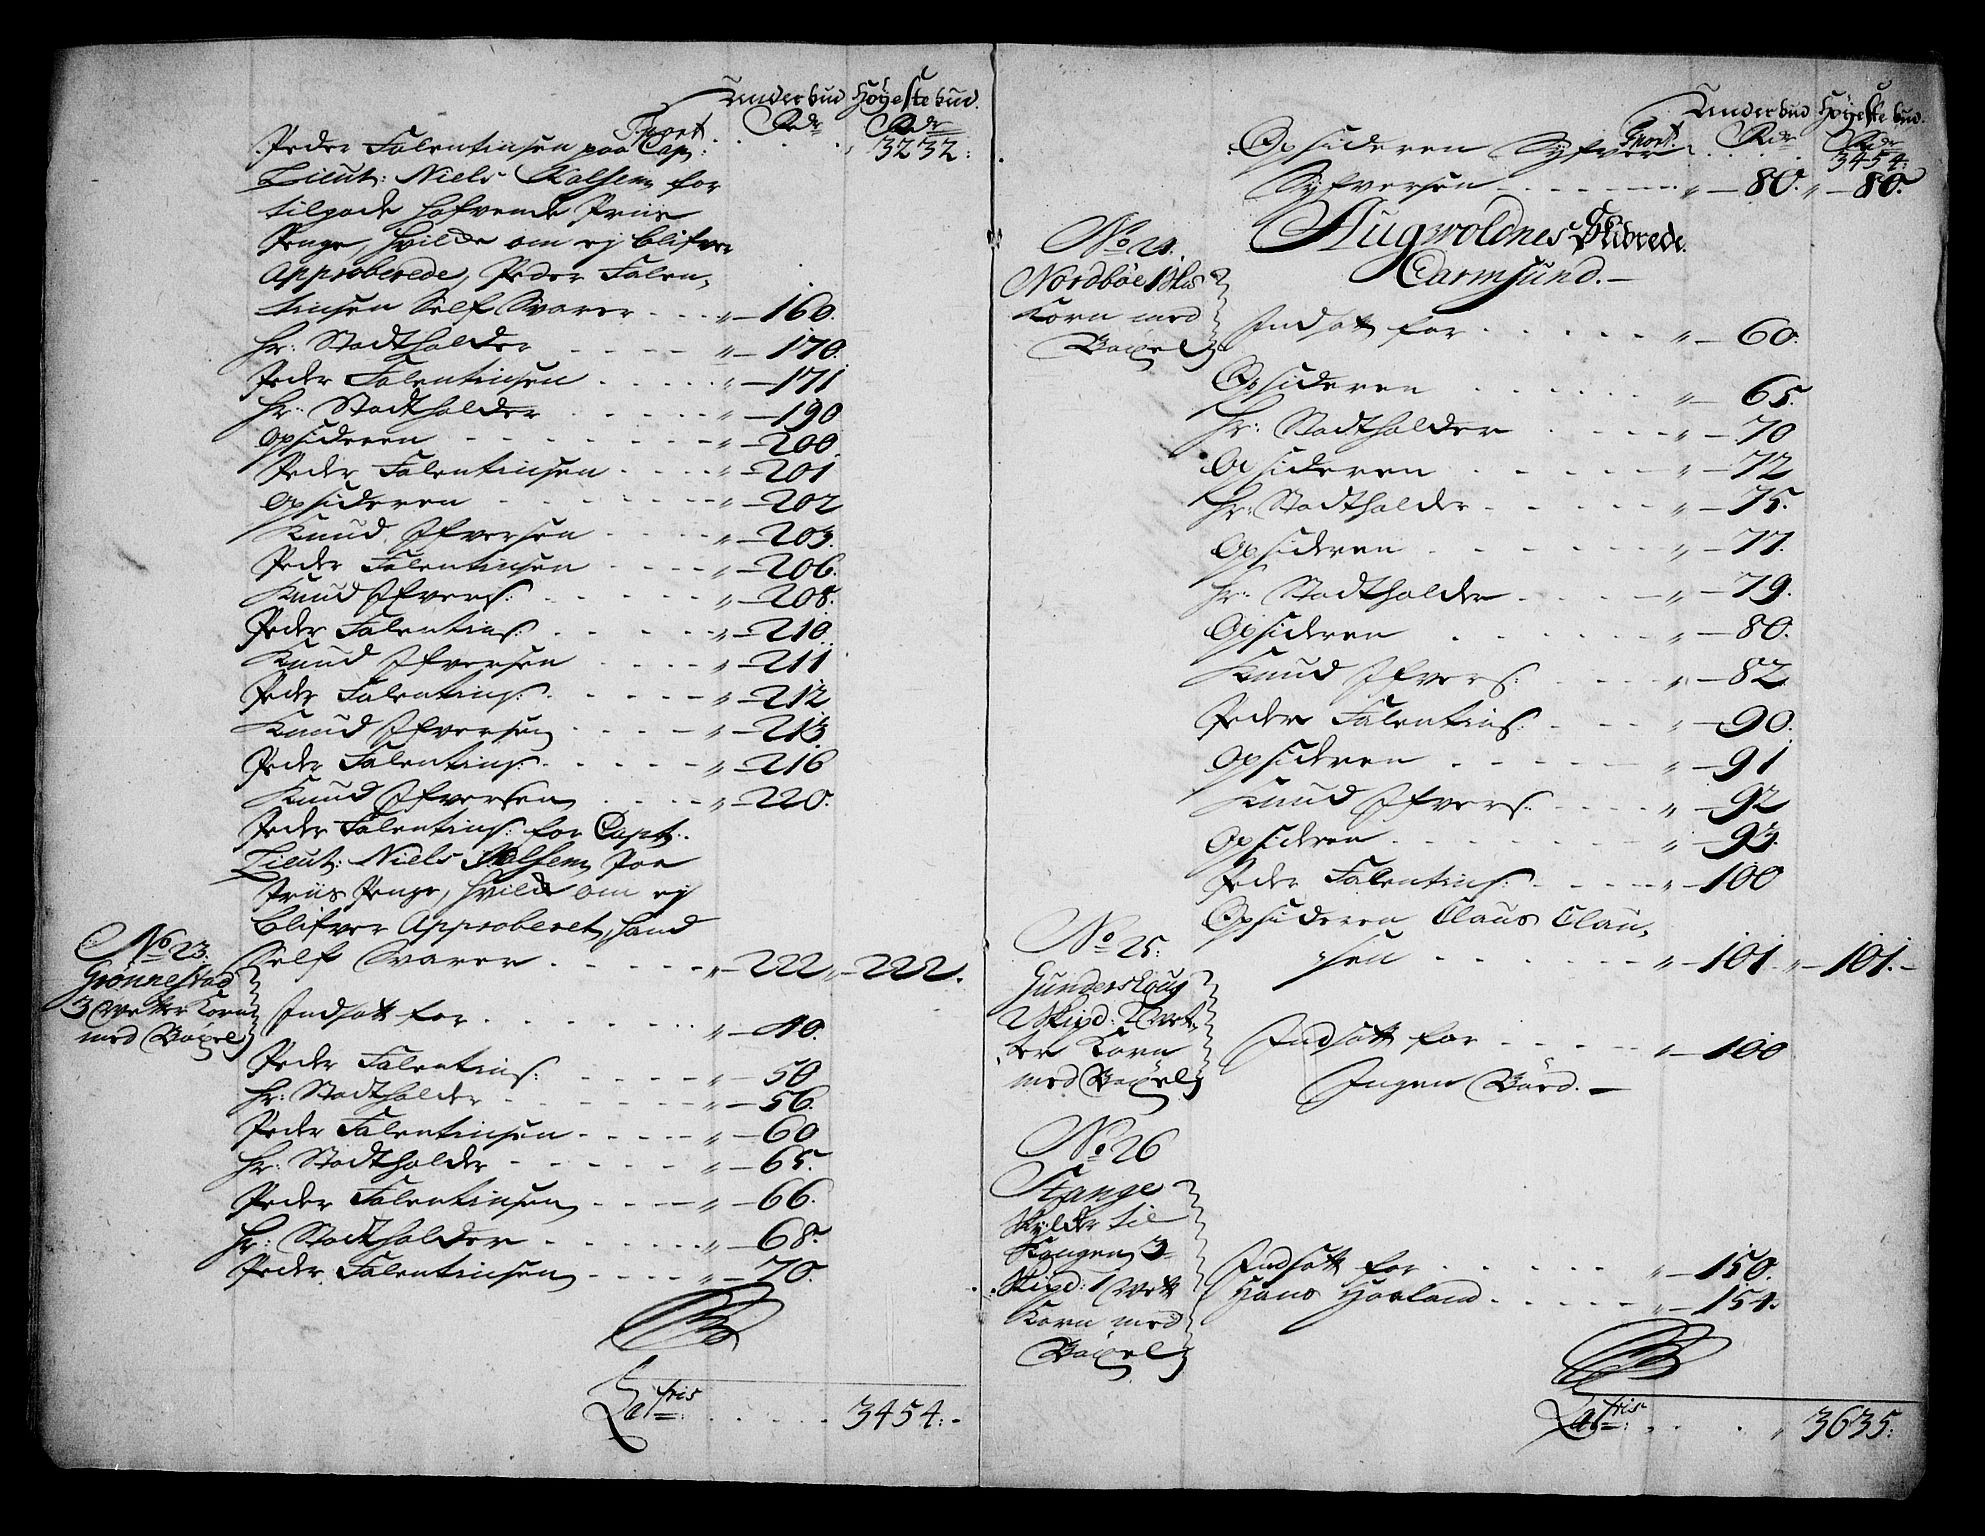 Underbud Høyeste bud.
Rdr Rdr
Tport . . . 3232:
Peder Falentinsen paa Cap:
Lieut: Niels Kalsem for
tilgode hafvende Priis
Penge, hvilde om ej blifver
Approberede, Peder Falen-
tinsen Self Svarer . . . „ — 160.
Hr: Stadtholder - - - - „ — 170.
Peder Falentinsen . . . . „ — 171
Hr: Stadtholder . . . . „ — 190
Opsideren - - - - - „ — 200.
Peder Falentinsen . . . . „ — 201
Opsideren - - - - - „ — 202
Knud Ifversen . . . . „ — 203.
Peder Falentinsen - - - - „ — 206.
Knud Ifvers: - - - - „ — 208.
Peder Falentins: . . . . „ — 210.
Knud Ifversen . . . . „ — 211
Peder Falentins: . . . . „ — 212
Knud Ifversen . . . . „ — 213
Peder Falentins: . . . . „ — 216
Knud Ifversen . . . . „ — 220.
Peder Falentins: for Capt:
Lieut: Niels Kalsem Paa
Priis Penge, hvilde om ej
blifver Approberet, hand
Self Svarer . . . . . „ — 222 „ — 222.
No 23.
Grönnestad
3 Vetter Korn
med Böxel
Indsatt for . . . . . . „ — 40.
Peder Falentins: . . . . „ — 50
Hr: Stadtholder - - - - „ — 56.
Peder Falentinsen - - - - „ — 60
Hr: Stadtholder - - - - „ — 65.
Peder Falentinsen . . . . „ — 66.
Hr: Stadtholder . . . . „ — 68.
Peder Falentinsen . . . . „ — 70.
Latris: . . . . . 3454: -
Underbud Høyeste bud.
Rdr Rdr
Tport. . . . 3454:
Opsideren Syfver
Syfversen - - - - - „ — 80. „ — 80.
Augwoldnes Skibrede.
Carmsund. —
No 24.
Nordböe 1 Pd
Korn med
Böxel
Indsatt for . . . . . „ — 60.
Opsideren . . . . . „ — 65.
Hr: Stadtholder . . . . „ — 70
Opsideren - - - - - „ — 72
Hr: Stadtholder - - - - „ — 75.
Opsideren - - - - - „ — 77.
Hr: Stadtholder . . . . „ — 79.
Opsideren . . . . . „ — 80.
Knud Ifvers: . . . . „ — 82
Peder Falentins: . . . . „ — 90.
Opsideren . . . . . „ — 91
Knud Ifvers: . . . . „ — 92
Opsideren . . . . . „ — 93.
Peder Falentins: . . . . „ — 100
Opsideren Claus Clau-
sen - - - - - „ — 101. „ — 101. -
No 25:
Gunderskoug
2 Skipd: 2 Vet-
ter Korn
med Böxel
Indsatt for . . . . . „ — 100
Ingen Böed. —
No 26
Stange
Skylder til
Kongen 3
Skipd: 1 Vett
Korn med
Böxel
Indsatt for . . . . . „ — 150.
Hans Hoeland . . . . . „ — 154.
Latris: . . . . „ 3635: